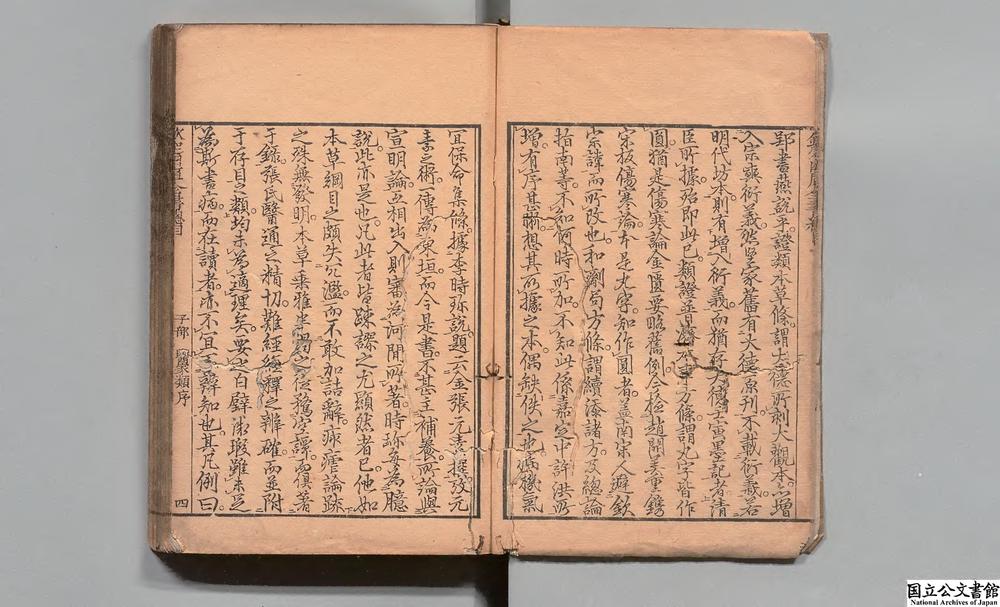 郢書燕説乎。證類本草條。謂大德所刺大觀本。以增
入宗奭衍義。然吾家舊有大德原刊。不載衍義。若
明代坊本。則有增入衍義。而猶存大德壬寅墨記者。清
臣所據。殆即此已。類證普濟本事方條。謂丸字皆作
圓。猶是傷寒論金匱要略舊例。今撿趙開美重鐫
宋板傷寒論。本是丸字。知作圓者。蓋南宋人避欽
宗諱而所改也。和劑局方條。謂續添諸方。及總論
指南等。不知何時所加。不知此係嘉定中許洪所
增。有序甚晰。想其所據之本。偶缺佚之也。病機氣
宜保命集條。據李時珍説。題云金張元素撰。攷元
素之術。一傳為東垣。而今是書不甚主補養。所論與
宣明論互相出入。則審為河間所著。時珍每為臆
説。此亦是也。凡此者皆疎謬之尤顯然者已。他如
本草綱目之頗失冗濫。而不敢加詰辭。痎瘧論疏
之殊無發明。本草乗雅
于錄。張氏醫通之精切。難經經釋之辨確。而並附
于存目之類。均未為適理矣。要之白璧微瑕。雖未足
為斯書病。而在讀者。亦不宜不辨知也。其凡例曰。
子部 醫家類序
四
国立公文書館
National Archives of Japan